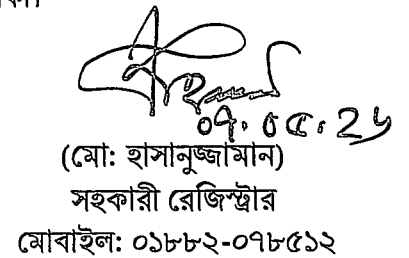 ০৭.০৫.২৬
(মো: হাসানুজ্জামান)
সহকারী রেজিস্ট্রার
মোবাইল: ০১৮৮২-০৭৮৫১২